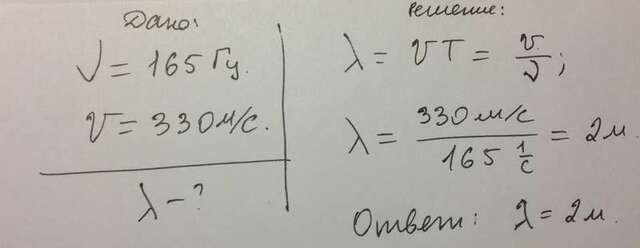 Дано:
ν = 165 Гц.
v = 330 м/с.
λ – ?
Решение:
λ = vT = v/ν;
λ = 330 м/с / 165 1/с = 2 м.
Ответ: λ = 2 м.